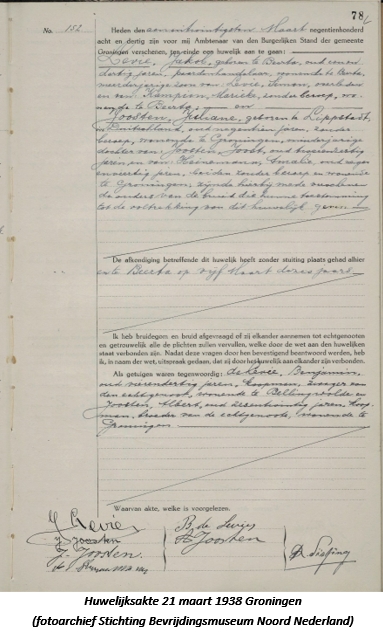 78
No. 152
Heden den eenentwintigsten Maart negentienhonderd
acht en dertig zijn voor mij Ambtenaar van den Burgerlijken Stand der gemeente
Groningen verschenen, ten einde een huwelijk aan te gaan:
Levie, Jakob, geboren te Beerta, oud een en
dertig jaren, paardenhandelaar, wonende te Beerta,
meerderjarige zoon van Levie, Simon, overleden
en van Kampion, Marchien, zonder beroep, wo-
nende te Beerta, en
Joosten, Juliane, geboren te Lippstadt,
in Duitschland, oud negentien jaren, zonder
beroep, wonende te Groningen, minderjarige
dochter van Joosten, Joost, oud
jaren en van Heinemann, Amalie, oud negen
en veertig jaren, beiden zonder beroep en wonende
te Groningen, zijnde hierbij mede verschenen
de ouders van de bruid die hunne toestemming
tot de voltrekking van dit huwelijk geven.
De afkondiging betreffende dit huwelijk heeft zonder stuiting plaats gehad alhier
en te Beerta op vijf Maart dezes jaars
Ik heb bruidegom en bruid afgevraagd of zij elkander aannemen tot echtgenooten
en getrouwelijk alle de plichten zullen vervullen, welke door de wet aan den huwelijken
staat verbonden zijn. Nadat deze vragen door hen bevestigend beantwoord werden, heb
ik, in naam der wet, uitspraak gedaan, dat zij door het huwelijk aan elkander zijn verbonden.
Als getuigen waren tegenwoordig: Benjamin,
oud vierendertig jaren, koopman, zwager van
den echtgenoot, wonende te Bellingwolde en
Joosten, Albert, oud zesentwintig jaren, koop-
man, broeder van de echtgenoote, wonende te
Groningen
Waarvan akte, welke is voorgelezen.
J. Levie
J. Joosten
J. Joosten.
B. de Levie
A. Joosten
Huwelijksakte 21 maart 1938 Groningen
(fotoarchief Stichting Bevrijdingsmuseum Noord Nederland)